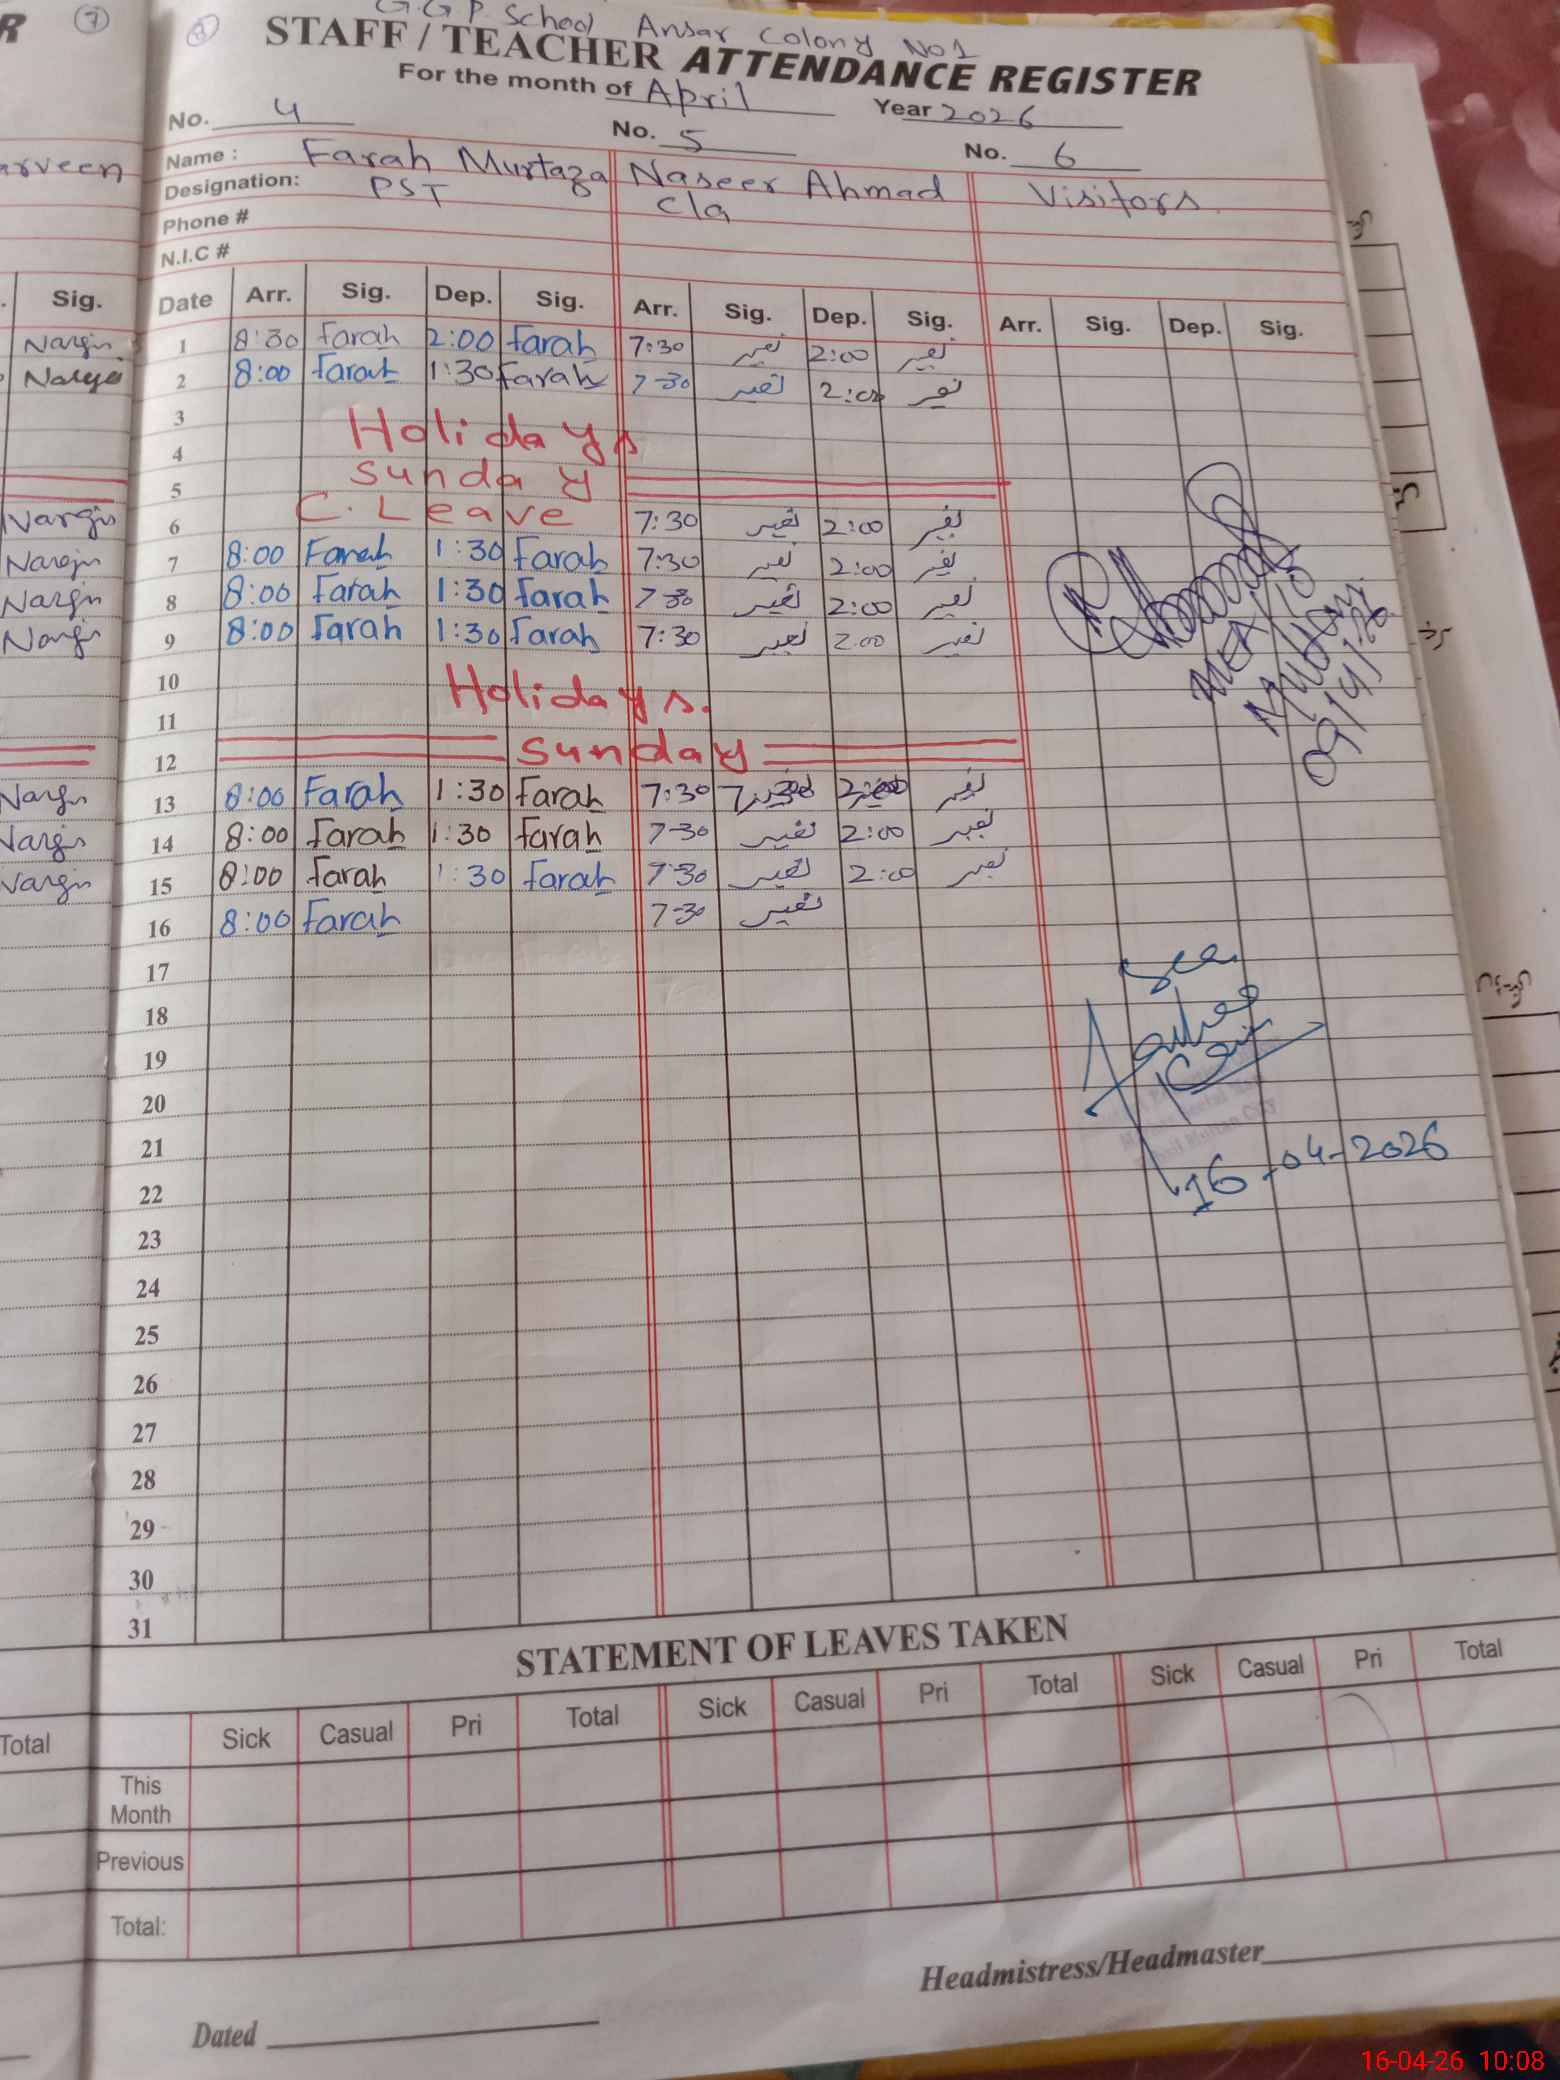 G.G.P School Ansar Colony No1
STAFF / TEACHER ATTENDANCE REGISTER
For the month of April Year 2026
No. 4 No. 5 No. 6
Name : Farah Murtaza Naseer Ahmad Visitors
Designation: PST C/a
Phone #
N.I.C #
Sig. Date Arr. Sig. Dep. Sig. Arr. Sig. Dep. Sig. Arr. Sig. Dep. Sig.
Nargis 1 8:30 Farah 2:00 Farah 7:30 نصیر 2:00 نصیر
Nargis 2 8:00 Farah 1:30 Farah 7-30 نصیر 2:00 نصیر
3
Holidays
4
5 Sunday
Nargis 6 C. Leave 7:30 نصیر 2:00 نصیر
Nargis 7 8:00 Farah 1:30 Farah 7:30 نصیر 2:00 نصیر
Nargis 8 8:00 Farah 1:30 Farah 7-30 نصیر 2:00 نصیر
Nargis 9 8:00 Farah 1:30 Farah 7:30 نصیر 2.00 نصیر
10
Holidays.
11
12 Sunday
Nargis 13 8:00 Farah 1:30 Farah 7:30 2:00 نصیر
Nargis 14 8:00 Farah 1:30 Farah 7-30 نصیر 2:00 نصیر
Nargis 15 8:00 Farah 1:30 Farah 7-30 نصیر 2:00 نصیر
16 8:00 Farah 7-30 نصیر
09/4/26
17
18
19
20
21
16-04-2026
22
23
24
25
26
27
28
29
30
31
STATEMENT OF LEAVES TAKEN
Total Sick Casual Pri Total Sick Casual Pri Total Sick Casual Pri Total
This Month
Previous
Total:
Headmistress/Headmaster
Dated
16-04-26 10:08